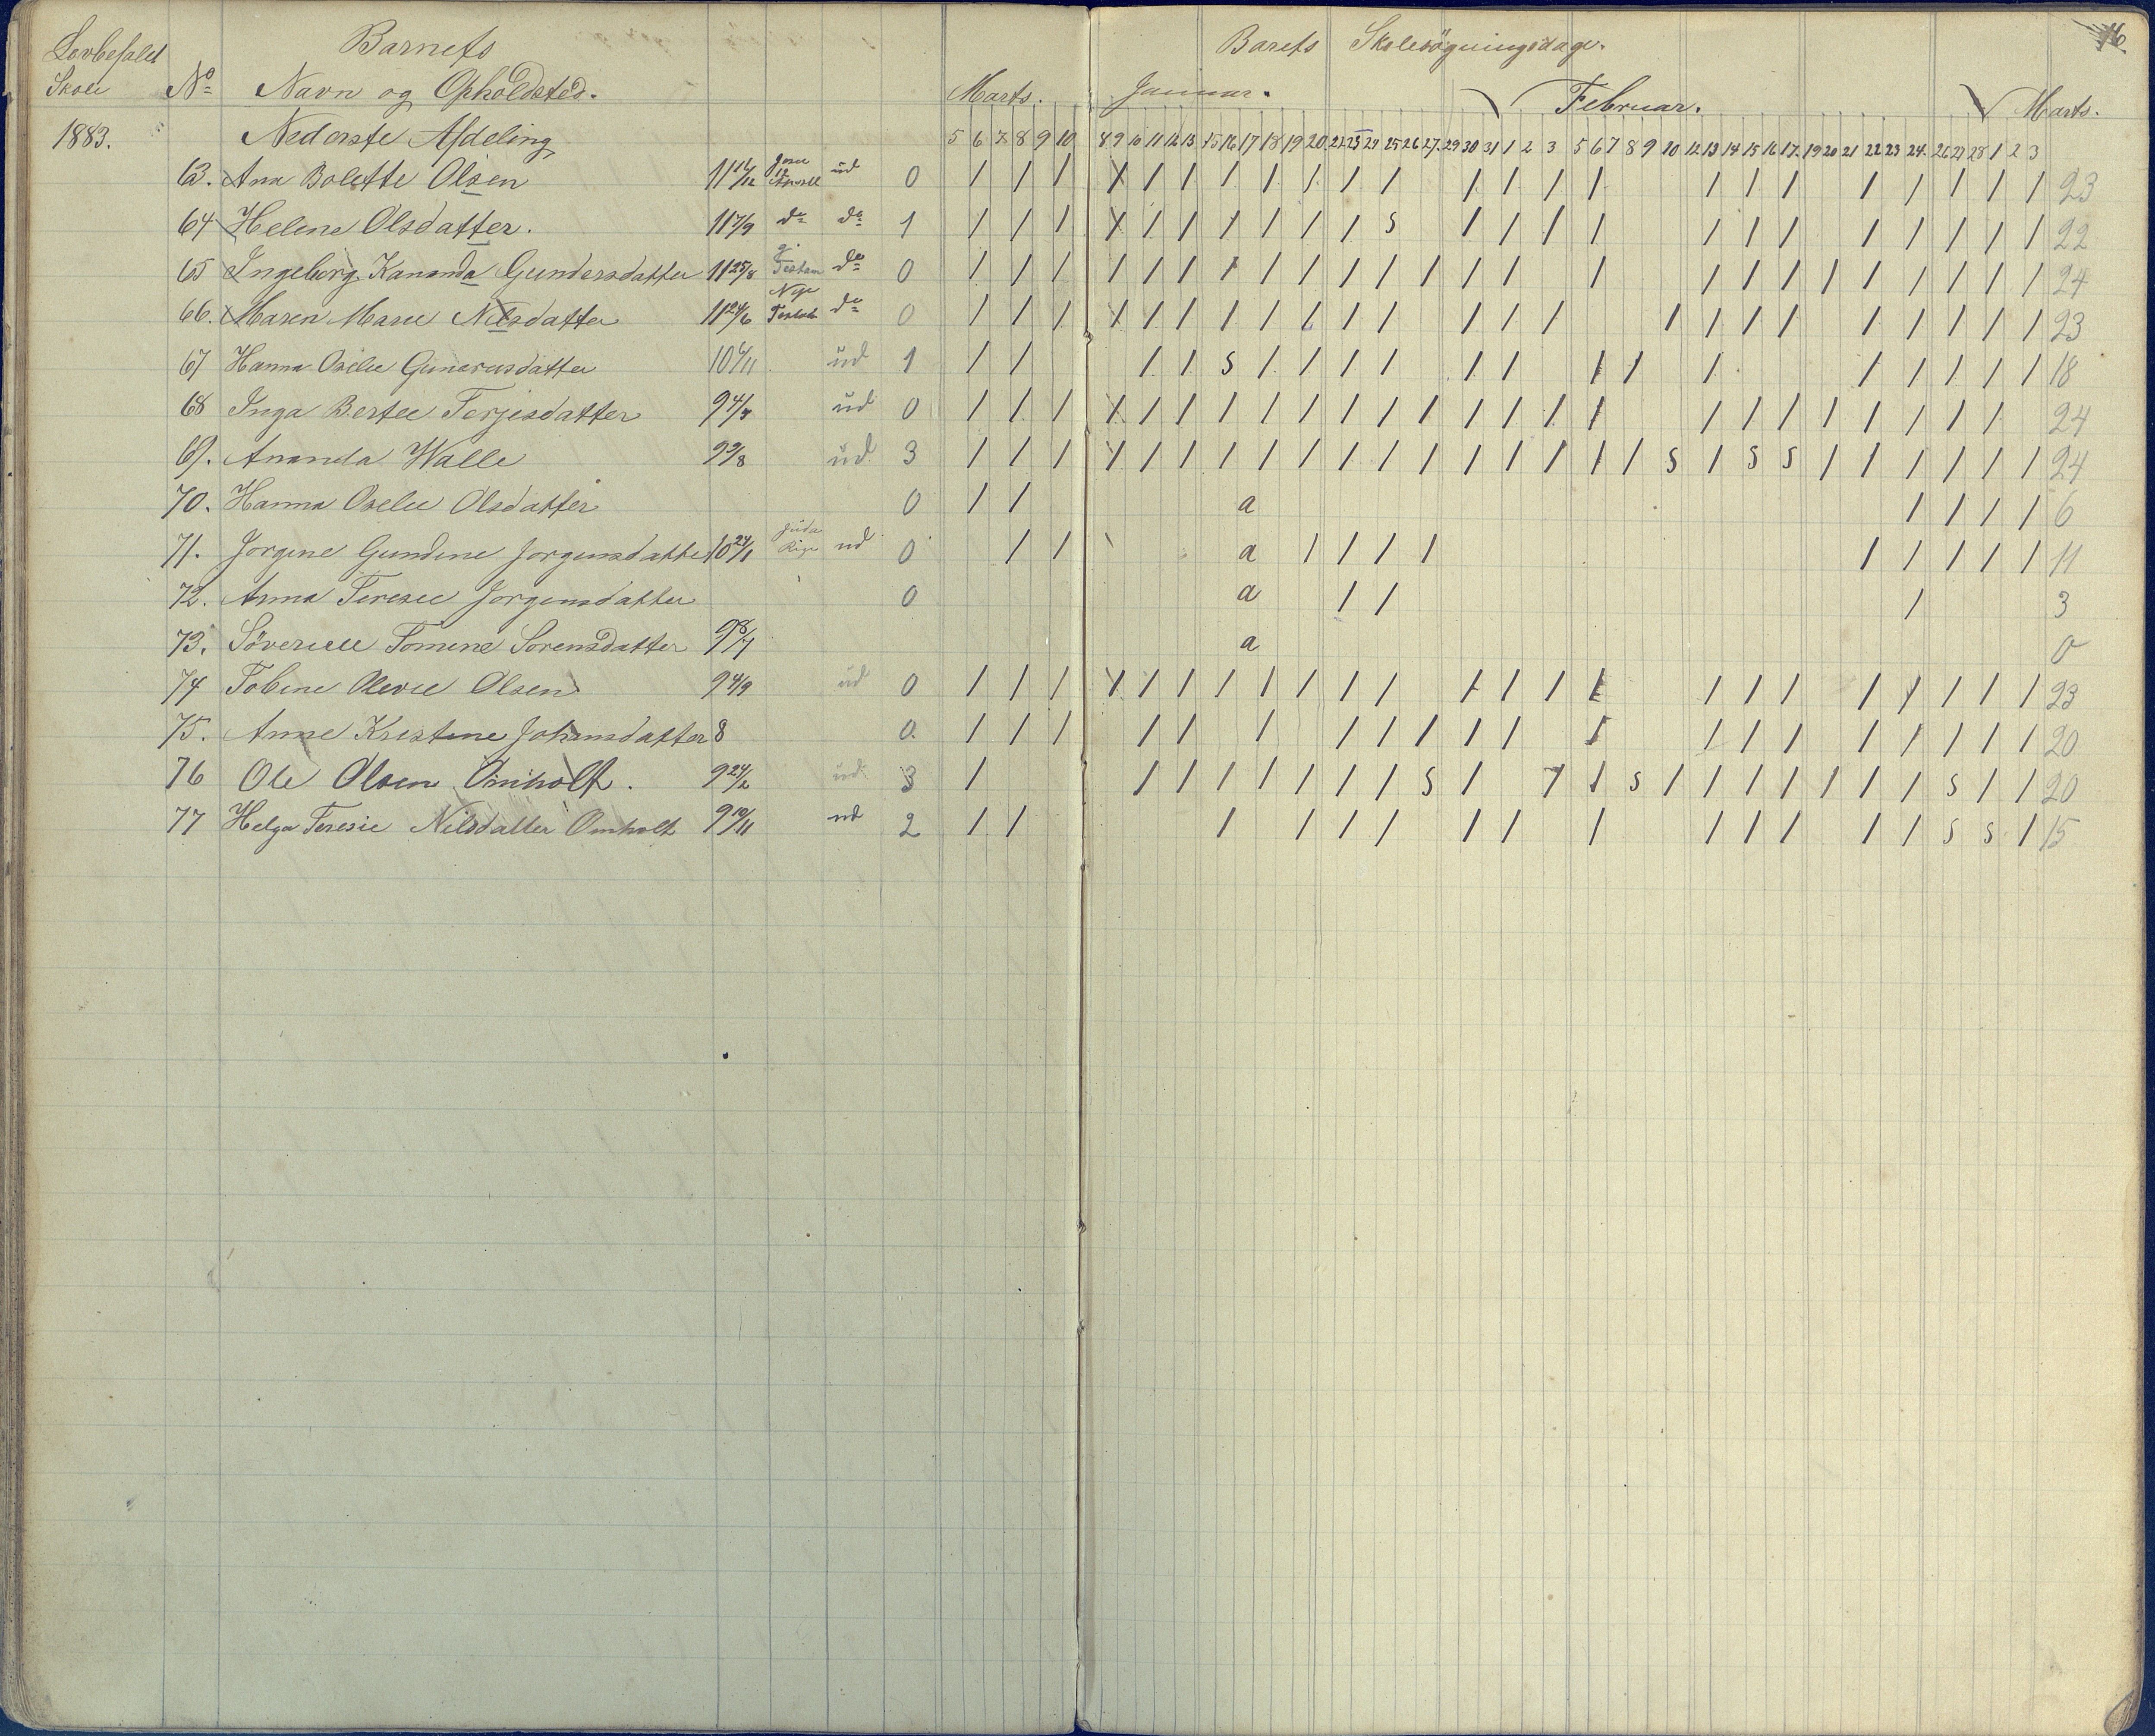 Lovbefalet Skole Barnets Barets Skolesøgningsdage. 16
No Navn og Opholdsted. Marts. Januar. Februar. Marts.
1883. Nederste Afdeling 5 6 7 8 9 10 8 9 10 11 12 13 15 16 17 18 19 20 22 23 24 25 26 27 29 30 31 1 2 3 5 6 7 8 9 10 12 13 14 15 16 17 19 20 21 22 23 24 26 27 28 1 2 3
63. Ana Bolette Olsen ud 0 / / / / / / / / / / / / / / / / / / / / / / / / / 23
64 Helene Olsdatter. 11 7/9 do do 1 / / / / / / / / / / s / / / / / / / / / / / / / 22
65 Ingeborg Kananda Gundersdatter 11 25/8 Testam do 0 / / / / / / / / / / / / / / / / / / / / / / / / / / 24
66. Maren Marie Nilsdatter 11 24/6 Nye do 0 / / / / / / / / / / / / / / / / / / / / / / / / / 23
67 Hanna Oselie Gunarusdatter 10 6/11 ud 1 / / / / s / / / / / / / / / / / / / / 18
68 Inga Bertee Terjesdatter 9 4/7 ud 0 / / / / / / / / / / / / / / / / / / / / / / / / / / 24
69. Ananda Walle 9 9/8 ud 3 / / / / / / / / / / / / / / / / / / s / s s / / / / / / / 24
70. Hanna Oselie Olsdatter 0 / / a / / / / 6
71. Jorgine Gundine Jorgensdatter 10 24/1 ud 0 / / a / / / / / / / / / 11
72. Anna Teresie Jorgensdatter 0 a / / / 3
73. Söverine Tomine Sorensdatter 9 8/7 a 0
74 Tobine Olevie Olsen 9 4/9 ud 0 / / / / / / / / / / / / / / / / / / / / / / / / / 23
75. Anne Kristine Johansdatter 8 0. / / / / / / / / / / / / / / / / / / / / / 20
76 Ole Olsen Omholt. 9 24/2 ud 3 / / / / / / / / / s / / / s / / / / / / / / s / / 20
77 Helga Teresie Nilsdatter Omholt 9 10/11 ud 2 / / / / / / / / / / / / / / s s / 15